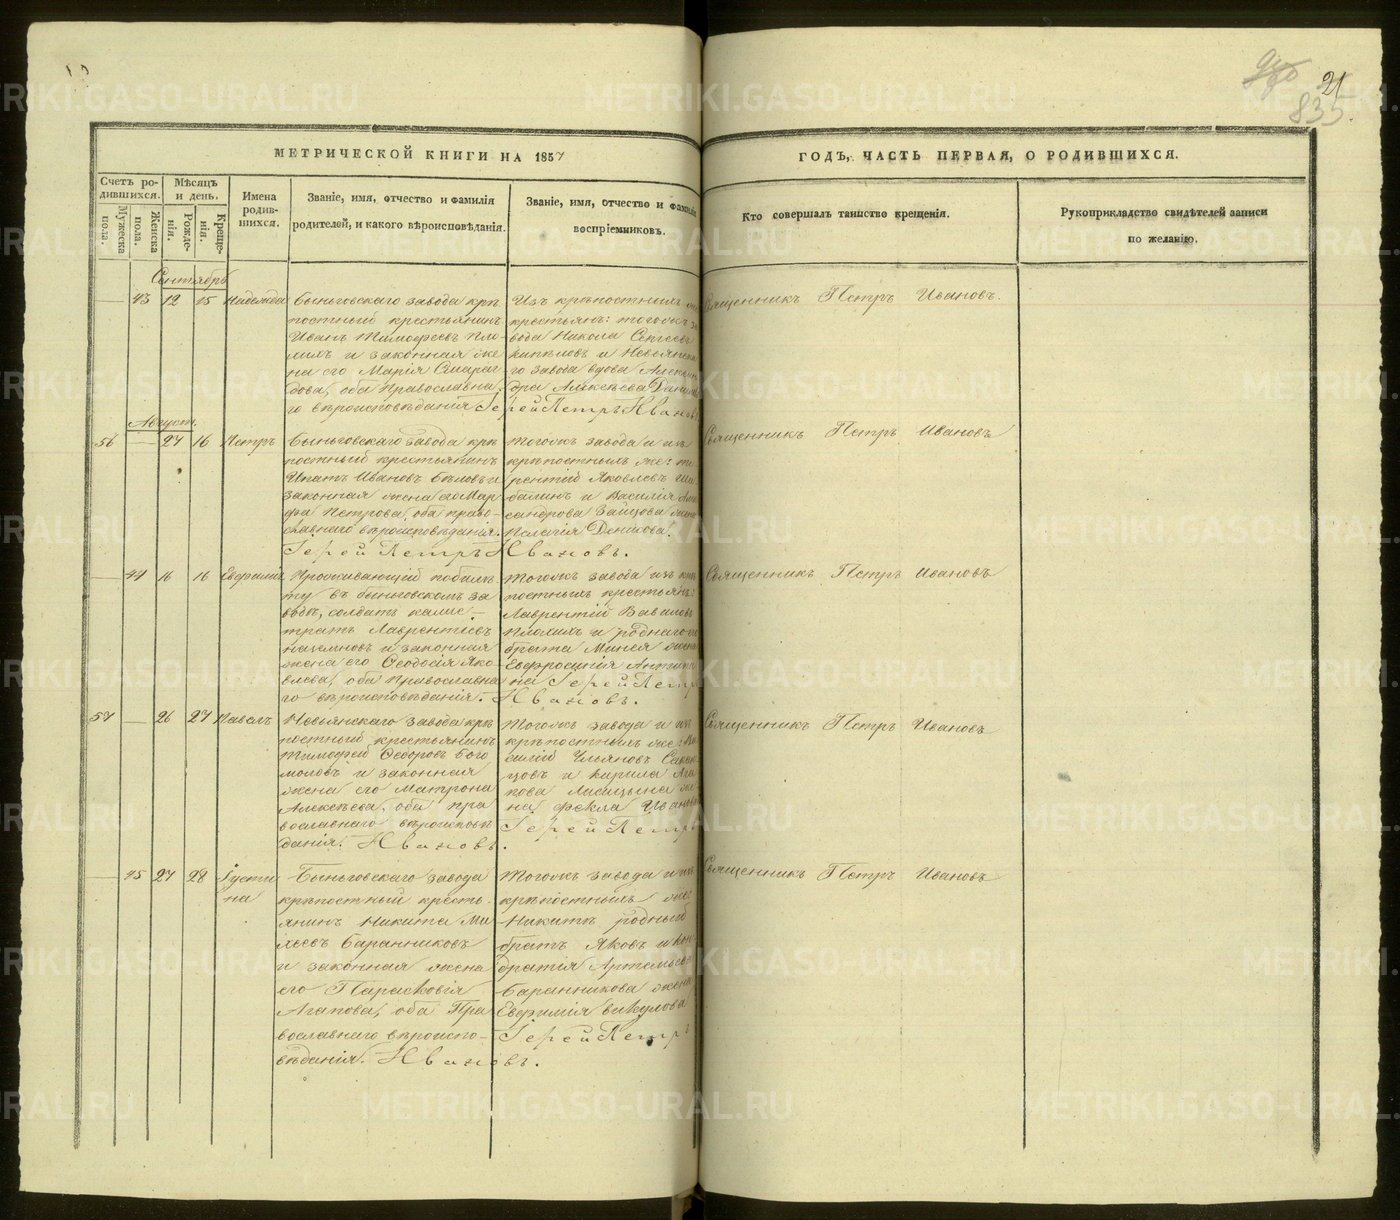 21
835
МЕТРИЧЕСКОЙ КНИГИ НА 1857
ГОДЪ, ЧАСТЬ ПЕРВАЯ, О РОДИВШИХСЯ.
Счетъ родившихся.
Мужеска пола.
Женска пола.
Мѣсяцъ и день.
Рожденія.
Крещенія.
Имена родившихся.
Званіе, имя, отчество и фамилія
родителей, и какого вѣроисповѣданія.
Званіе, имя, отчество и фамилія
воспріемниковъ.
Кто совершалъ таинство крещенія.
Рукоприкладство свидѣтелей записи
по желанію.
Сентябрь
43 12 15 Надежда
Быньговскаго завода крѣ
постный крестьянинъ
Иванъ Тимофеевъ Пло
хихъ и законная же
на его Марія Смараг
дова, оба Православна
го вѣроисповѣданія
Изъ крѣпостныхъ
крестьянъ: тогожъ за
вода Никола Сергеевъ
и Невьянска
го завода вдова Алексан
дра Алексѣева
Іерей Петръ Ивановъ
Священникъ Петръ Ивановъ.
Августъ.
56 — 27 16 Петръ
Быньговскаго завода крѣ
постный крестьянинъ
Ипатъ Ивановъ Бѣловъ и
законная жена его Мар
фа Петрова, оба право
славнаго вѣроисповѣданія.
Тогожъ завода и изъ
крѣпостныхъ же: Те
рентій Яковлевъ Ши
балинъ и Василія Але
ксандрова Зайцова жена
Пелагія Денисова.
Іерей Петръ Ивановъ.
Священникъ Петръ Ивановъ
— 44 16 16 Евфимія
Проживающій по билѣ
ту въ Быньговскомъ за
водѣ, солдатъ Калис—
тратъ Лаврентіевъ
и законная
жена его Ѳеодосія Яко
влева, оба Православна
го вѣроисповѣданія.
Тогожъ завода изъ крѣ
постныхъ крестьянъ:
Лаврентій Вавиловъ
Плохихъ и роднаго
брата Минея жена
Евфросинія Антипи
на Іерей Петръ
Ивановъ.
Священникъ Петръ Ивановъ
57 — 26 27 Павелъ
Невьянскаго завода крѣ
постный крестьянинъ
Тимофей Ѳедоровъ Бого
моловъ и законная
жена его Матрона
Алексѣева, оба пра
вославнаго вѣроисповѣ
данія.
Тогожъ завода и изъ
крѣпостныхъ же: Ва
силій Ульяновъ
цовъ и Кирила Ага
пова Лисицына же
на Ѳекла Иванова
Іерей Петръ
Ивановъ.
Священникъ Петръ Ивановъ
— 45 27 28 Іусти
на
Быньговскаго завода
крѣпостный кресть
янинъ Никита Ми
хеевъ Баранниковъ
и законная жена
его Парасковія
Агапова, оба Пра
вославнаго вѣроиспо—
вѣданія.
Тогожъ завода изъ
крѣпостныхъ же:
Никитѣ родный
братъ Яковъ и Кон
дратія Артемьева
Баранникова жена
Евфимія Викулова
Іерей Петръ
Ивановъ.
Священникъ Петръ Ивановъ
METRIKI.GASO-URAL.RU